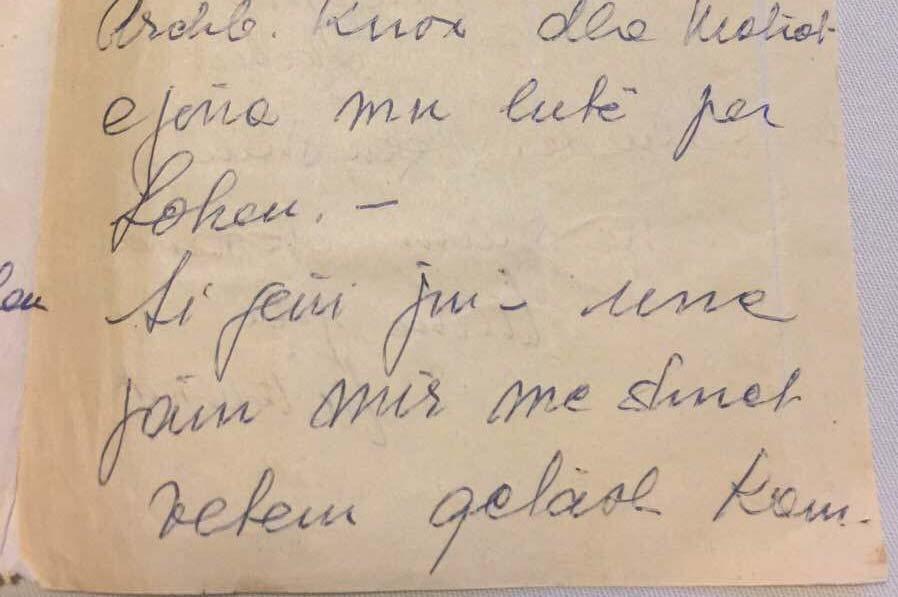 Archb. Knox dhe Motrat
e jona mu lutë per
Loken. -
Si jeni ju - une
jám mir me shnet
vetem gelásh kam.